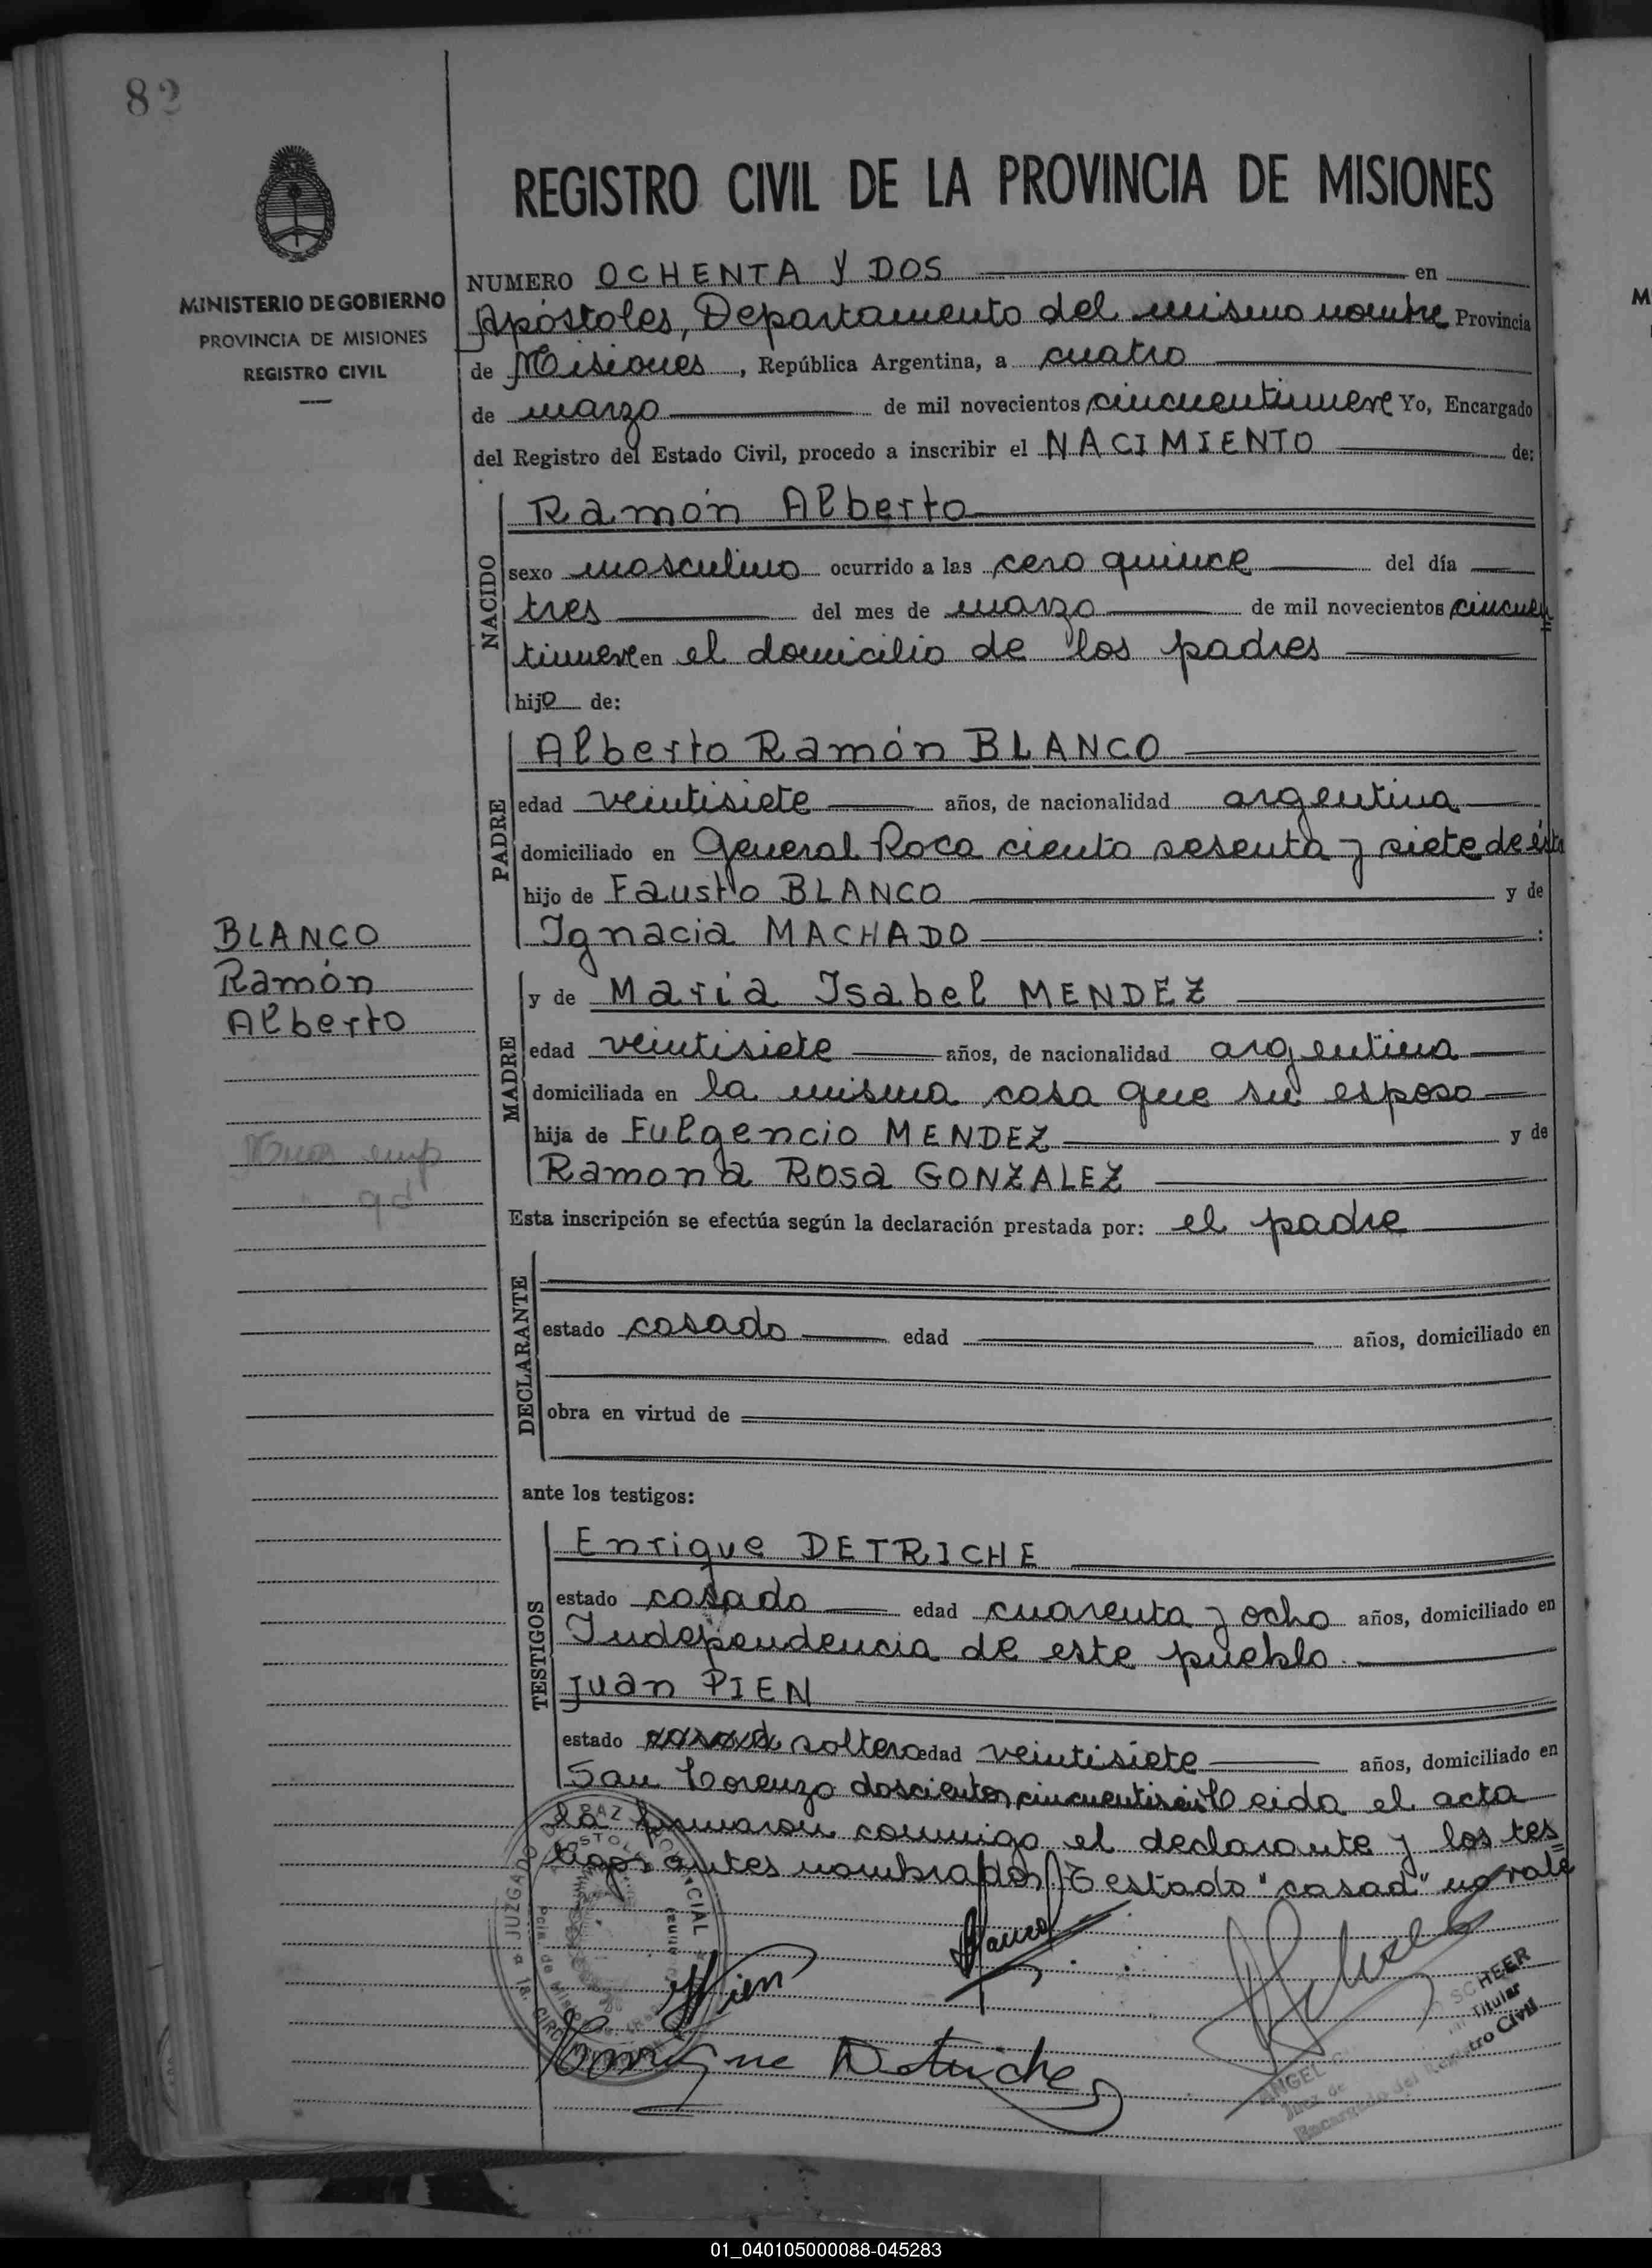 82
MINISTERIO DE GOBIERNO
PROVINCIA DE MISIONES
REGISTRO CIVIL
REGISTRO CIVIL DE LA PROVINCIA DE MISIONES
NUMERO OCHENTA Y DOS en
Apóstoles, Departamento del mismo nombre Provincia
de Misiones, República Argentina, a cuatro
de marzo de mil novecientos cincuentinueve Yo, Encargado
del Registro del Estado Civil, procedo a inscribir el NACIMIENTO de:
NACIDO
Ramón Alberto
sexo masculino ocurrido a las cero quince del día
tres del mes de marzo de mil novecientos cincuen
tinueve en el domicilio de los padres
hijo de:
PADRE
Alberto Ramón BLANCO
edad veintisiete años, de nacionalidad argentina
domiciliado en General Roca ciento sesenta y siete de ésta
hijo de Fausto BLANCO y de
Ignacia MACHADO
BLANCO
Ramón
Alberto
MADRE
y de Maria Isabel MENDEZ
edad veintisiete años, de nacionalidad argentina
domiciliada en la misma casa que su esposo
hija de Fulgencio MENDEZ y de
Ramona Rosa GONZALEZ
Esta inscripción se efectúa según la declaración prestada por: el padre
DECLARANTE
estado casado edad años, domiciliado en
obra en virtud de
ante los testigos:
TESTIGOS
Enrique DETRICHE
estado casado edad cuarenta y ocho años, domiciliado en
Independencia de este pueblo.
Juan PIEN
estado casad soltero edad veintisiete años, domiciliado en
San Lorenzo doscientos cincuentiseis Leida el acta
la firmaron conmigo el declarante y los tes
tigos antes nombrados. Testado "casad" no vale
Blanco
Pien
Enrique Detriche
SCHEER
Titular
ANGEL
Juez de
Encargado del Registro Civil
JUZGADO DE PAZ
1a. CIRC
Pcia. de Misiones
M
01_040105000088-045283